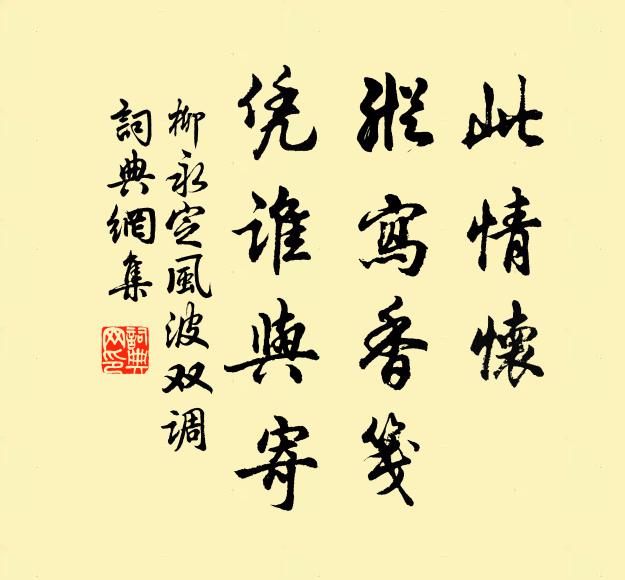 此情懷
縱寫香箋
凭谁與寄
柳永定風波双调
詞典網集
詞典
网印